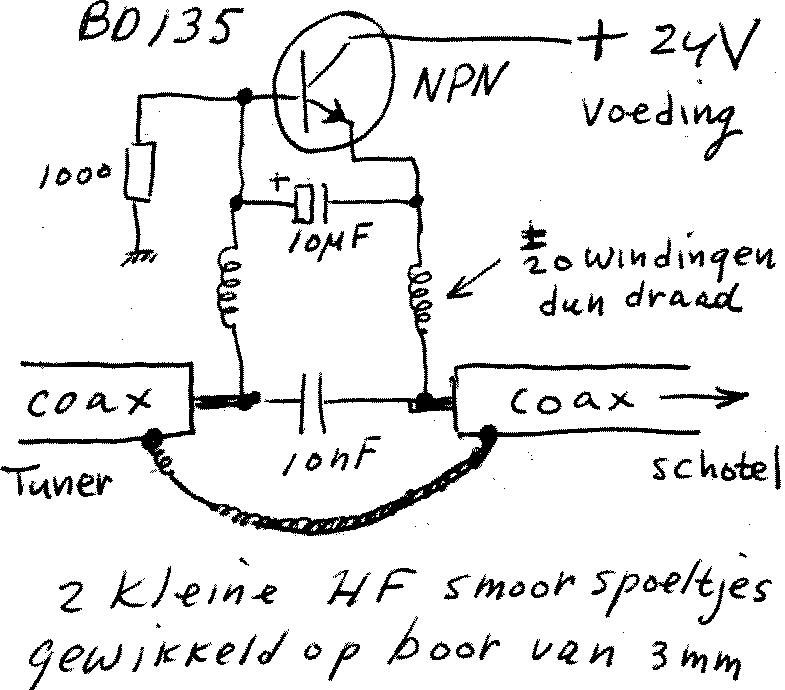 BD135
+ 24V
NPN
Voeding
1000
+
10µF
± 20 windingen
dun draad
coax
coax
10nF
Tuner
schotel
2 kleine HF smoor spoeltjes
gewikkeld op boor van 3mm